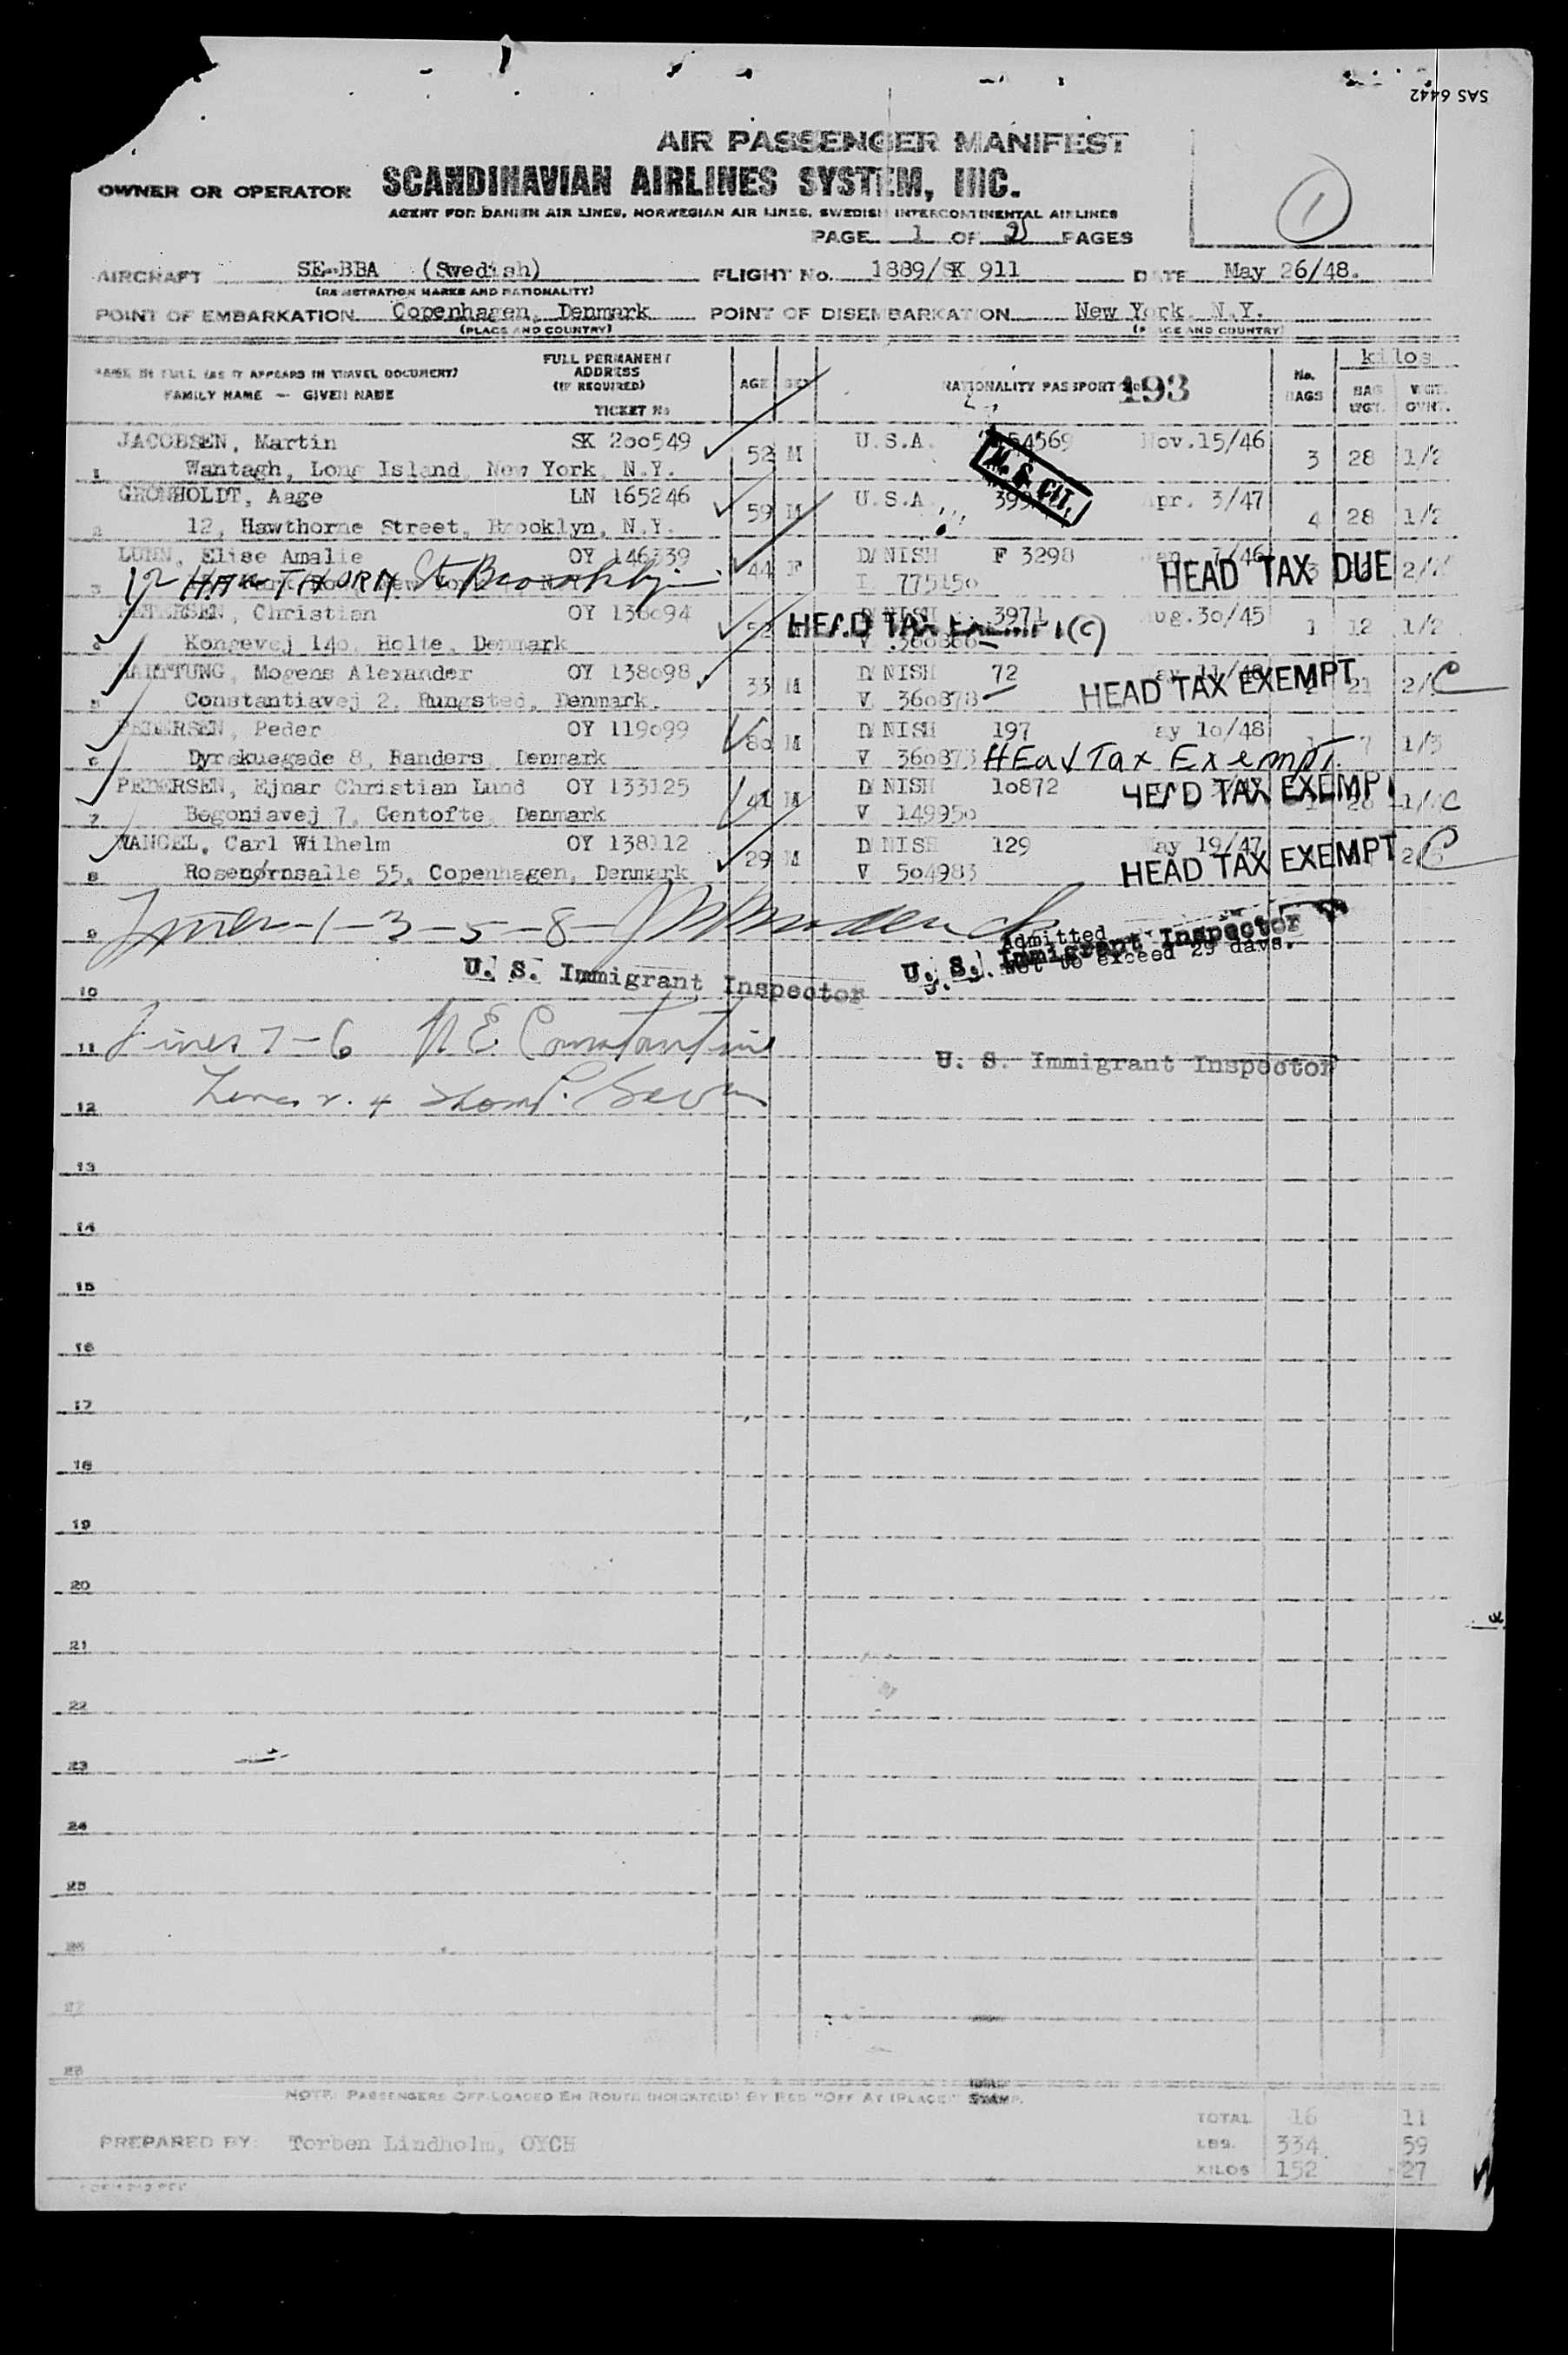 SAS 6442
AIR PASSENGER MANIFEST
OWNER OR OPERATOR SCANDINAVIAN AIRLINES SYSTEM, INC.
AGENT FOR DANISH AIR LINES, NORWEGIAN AIR LINES, SWEDISH INTERCONTINENTAL AIRLINES
1
PAGE 1 OF 2 PAGES
AIRCRAFT SE-BBA (Swedish) FLIGHT No. 1889/SK 911 DATE May 26/48.
(REGISTRATION MARKS AND NATIONALITY)
POINT OF EMBARKATION Copenhagen, Denmark POINT OF DISEMBARKATION New York, N.Y.
(PLACE AND COUNTRY) (PLACE AND COUNTRY)
NAME IN FULL (AS IT APPEARS IN TRAVEL DOCUMENT) FAMILY NAME — GIVEN NAME FULL PERMANENT ADDRESS (IF REQUIRED) TICKET No AGE SEX NATIONALITY PASSPORT No. 193 No. BAGS kilos BAG WGT. WGT. OVHT.
JACOBSEN, Martin SK 200549 52 M U.S.A. 54569 Nov.15/46 3 28 1/2
1 Wantagh, Long Island, New York, N.Y.
U. S. CIT.
GRONHOLDT, Aage LN 165246 59 M U.S.A. Apr. 3/47 4 28 1/2
2 12, Hawthorne Street, Brooklyn, N.Y.
LUHN, Elise Amalie OY 146339 44 F DANISH F 3298 HEAD TAX DUE
3 12 HAWTHORN St Brooklyn I 775150
PETERSEN, Christian OY 136094 52 DANISH 3971 Aug.30/45 1 12 1/2
HEAD TAX EXEMPT (C)
4 Kongevej 140, Holte, Denmark V 360866
HARTTUNG, Mogens Alexander OY 138098 33 M DANISH 72 May 11/48 21
5 Constantiavej 2, Rungsted, Denmark. V 360878 HEAD TAX EXEMPT C
PEDERSEN, Peder OY 119099 80 M DANISH 197 May 10/48 1 7 1/3
6 Dyrskuegade 8, Randers, Denmark V 360873 HEAd Tax Exempt
PEDERSEN, Ejnar Christian Lund OY 133125 41 M DANISH 10872 HEAD TAX EXEMPT C
7 Begoniavej 7, Gentofte, Denmark V 149950
MANGEL, Carl Wilhelm OY 138112 29 M DANISH 129 May 19/47
8 Rosenørnsalle 55, Copenhagen, Denmark V 504983 HEAD TAX EXEMPT C
9 Lines-1-3-5-8-
Admitted
Not to exceed 29 days.
U. S. Immigrant Inspector U. S. Immigrant Inspector
10
11 Lines 7-6 N E Constantine
U. S. Immigrant Inspector
12 Lines 2. 4
13
14
15
16
17
18
19
20
21
22
23
24
25
26
27
28
NOTE: PASSENGERS OFF-LOADED EN ROUTE INDICATE(D) BY RED "OFF AT (PLACE)" STAMP.
TOTAL 16 11
PREPARED BY: Torben Lindholm, OYCH LBS. 334 59
KILOS 152 27